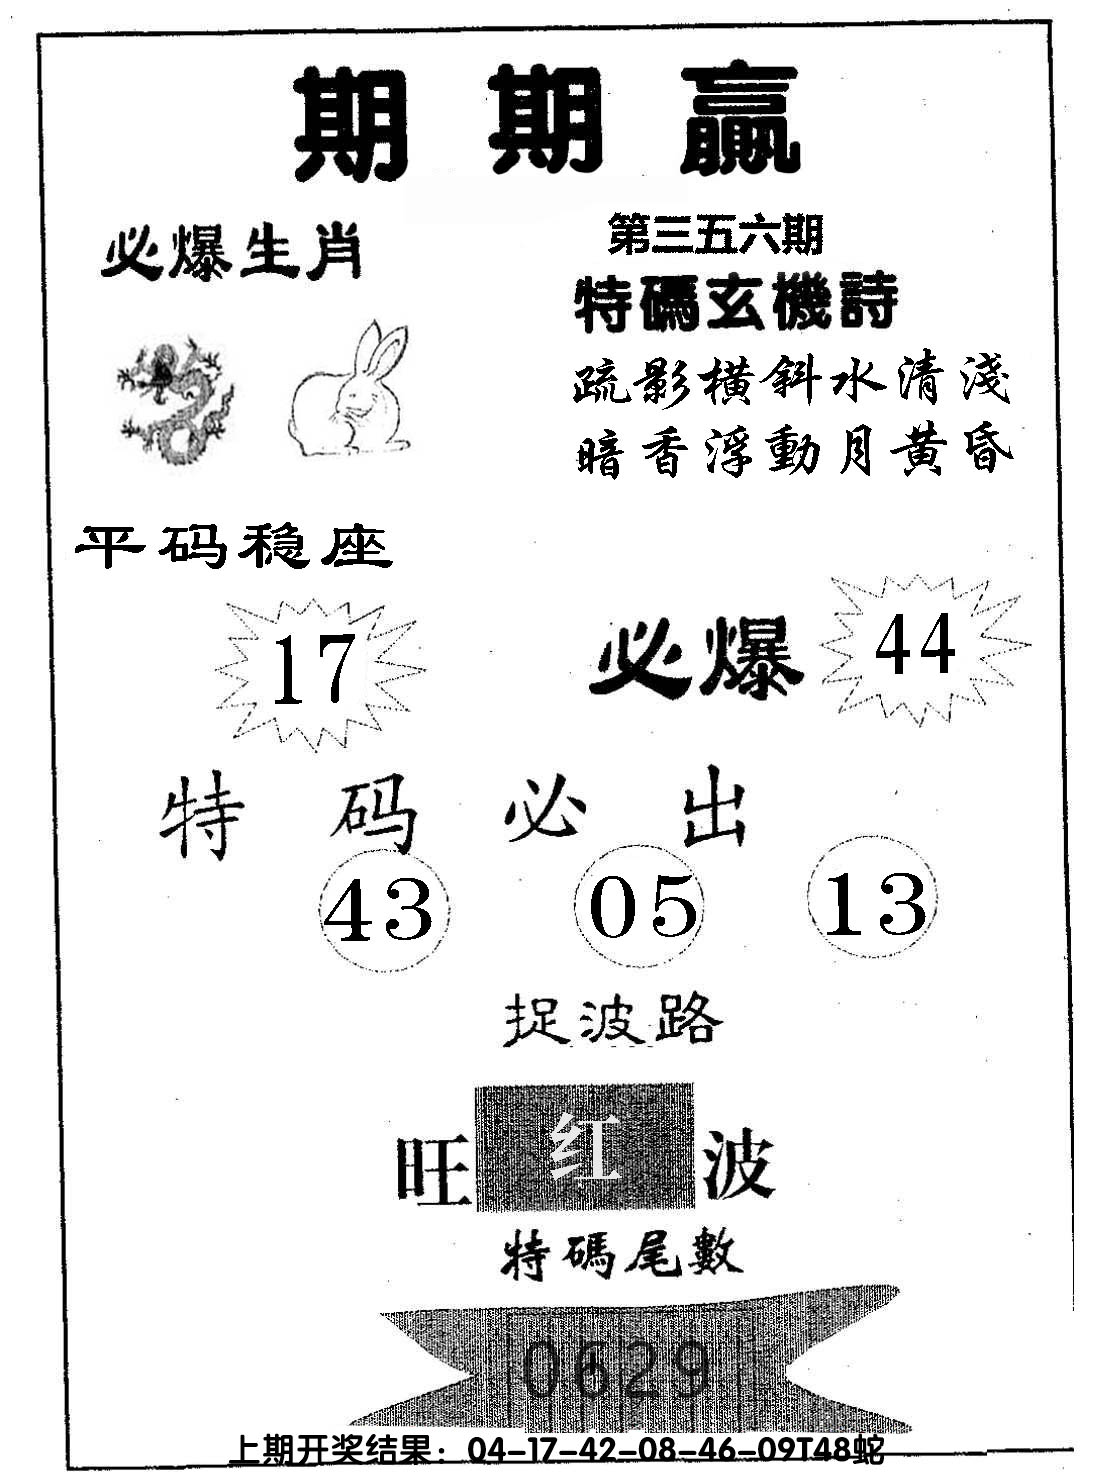 期期赢
第三五六期
必爆生肖
特碼玄機詩
疏影橫斜水清淺
暗香浮動月黄昏
平码稳座
17
必爆 44
特码必出
43 05 13
捉波路
旺 红 波
特碼尾數
0629
上期开奖结果：04-17-42-08-46-09T48蛇